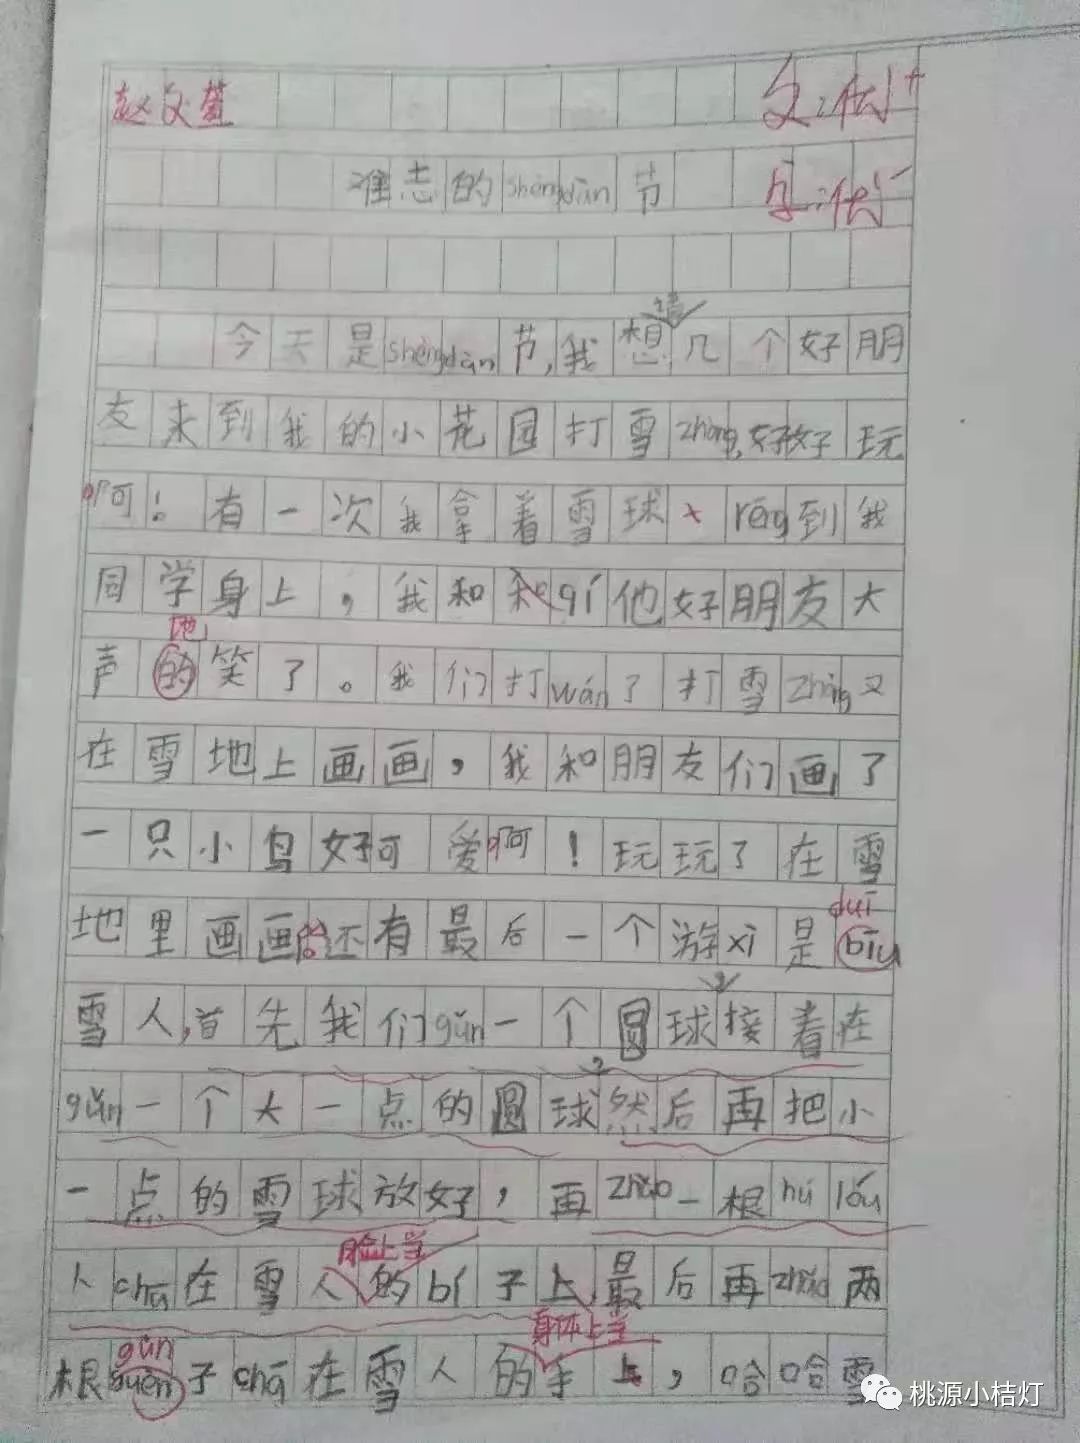 赵文萱 文:优+
难忘的shèngdàn节 字:优-
今天是shèngdàn节,我想请几个好朋
友来到我的小花园打雪zhàng,好好玩
啊!有一次我拿着雪球rēng到我
同学身上,我和和qí他好朋友大
地
声的笑了。我们打wán了打雪zhàng又
在雪地上画画,我和朋友们画了
一只小鸟好可爱啊!玩玩了在雪
duī
地里画画还有最后一个游xì是bīu
雪人,首先我们gǔn一个圆球,接着在
gǔn一个大一点的圆球,然后再把小
一点的雪球放好,再zhǎo一根hú lóu
脸上当
人chā在雪人的bí子上最后再zhǎo两
gùn 身体上当
根guèn子chā在雪人的手上,哈哈雪
桃源小桔灯